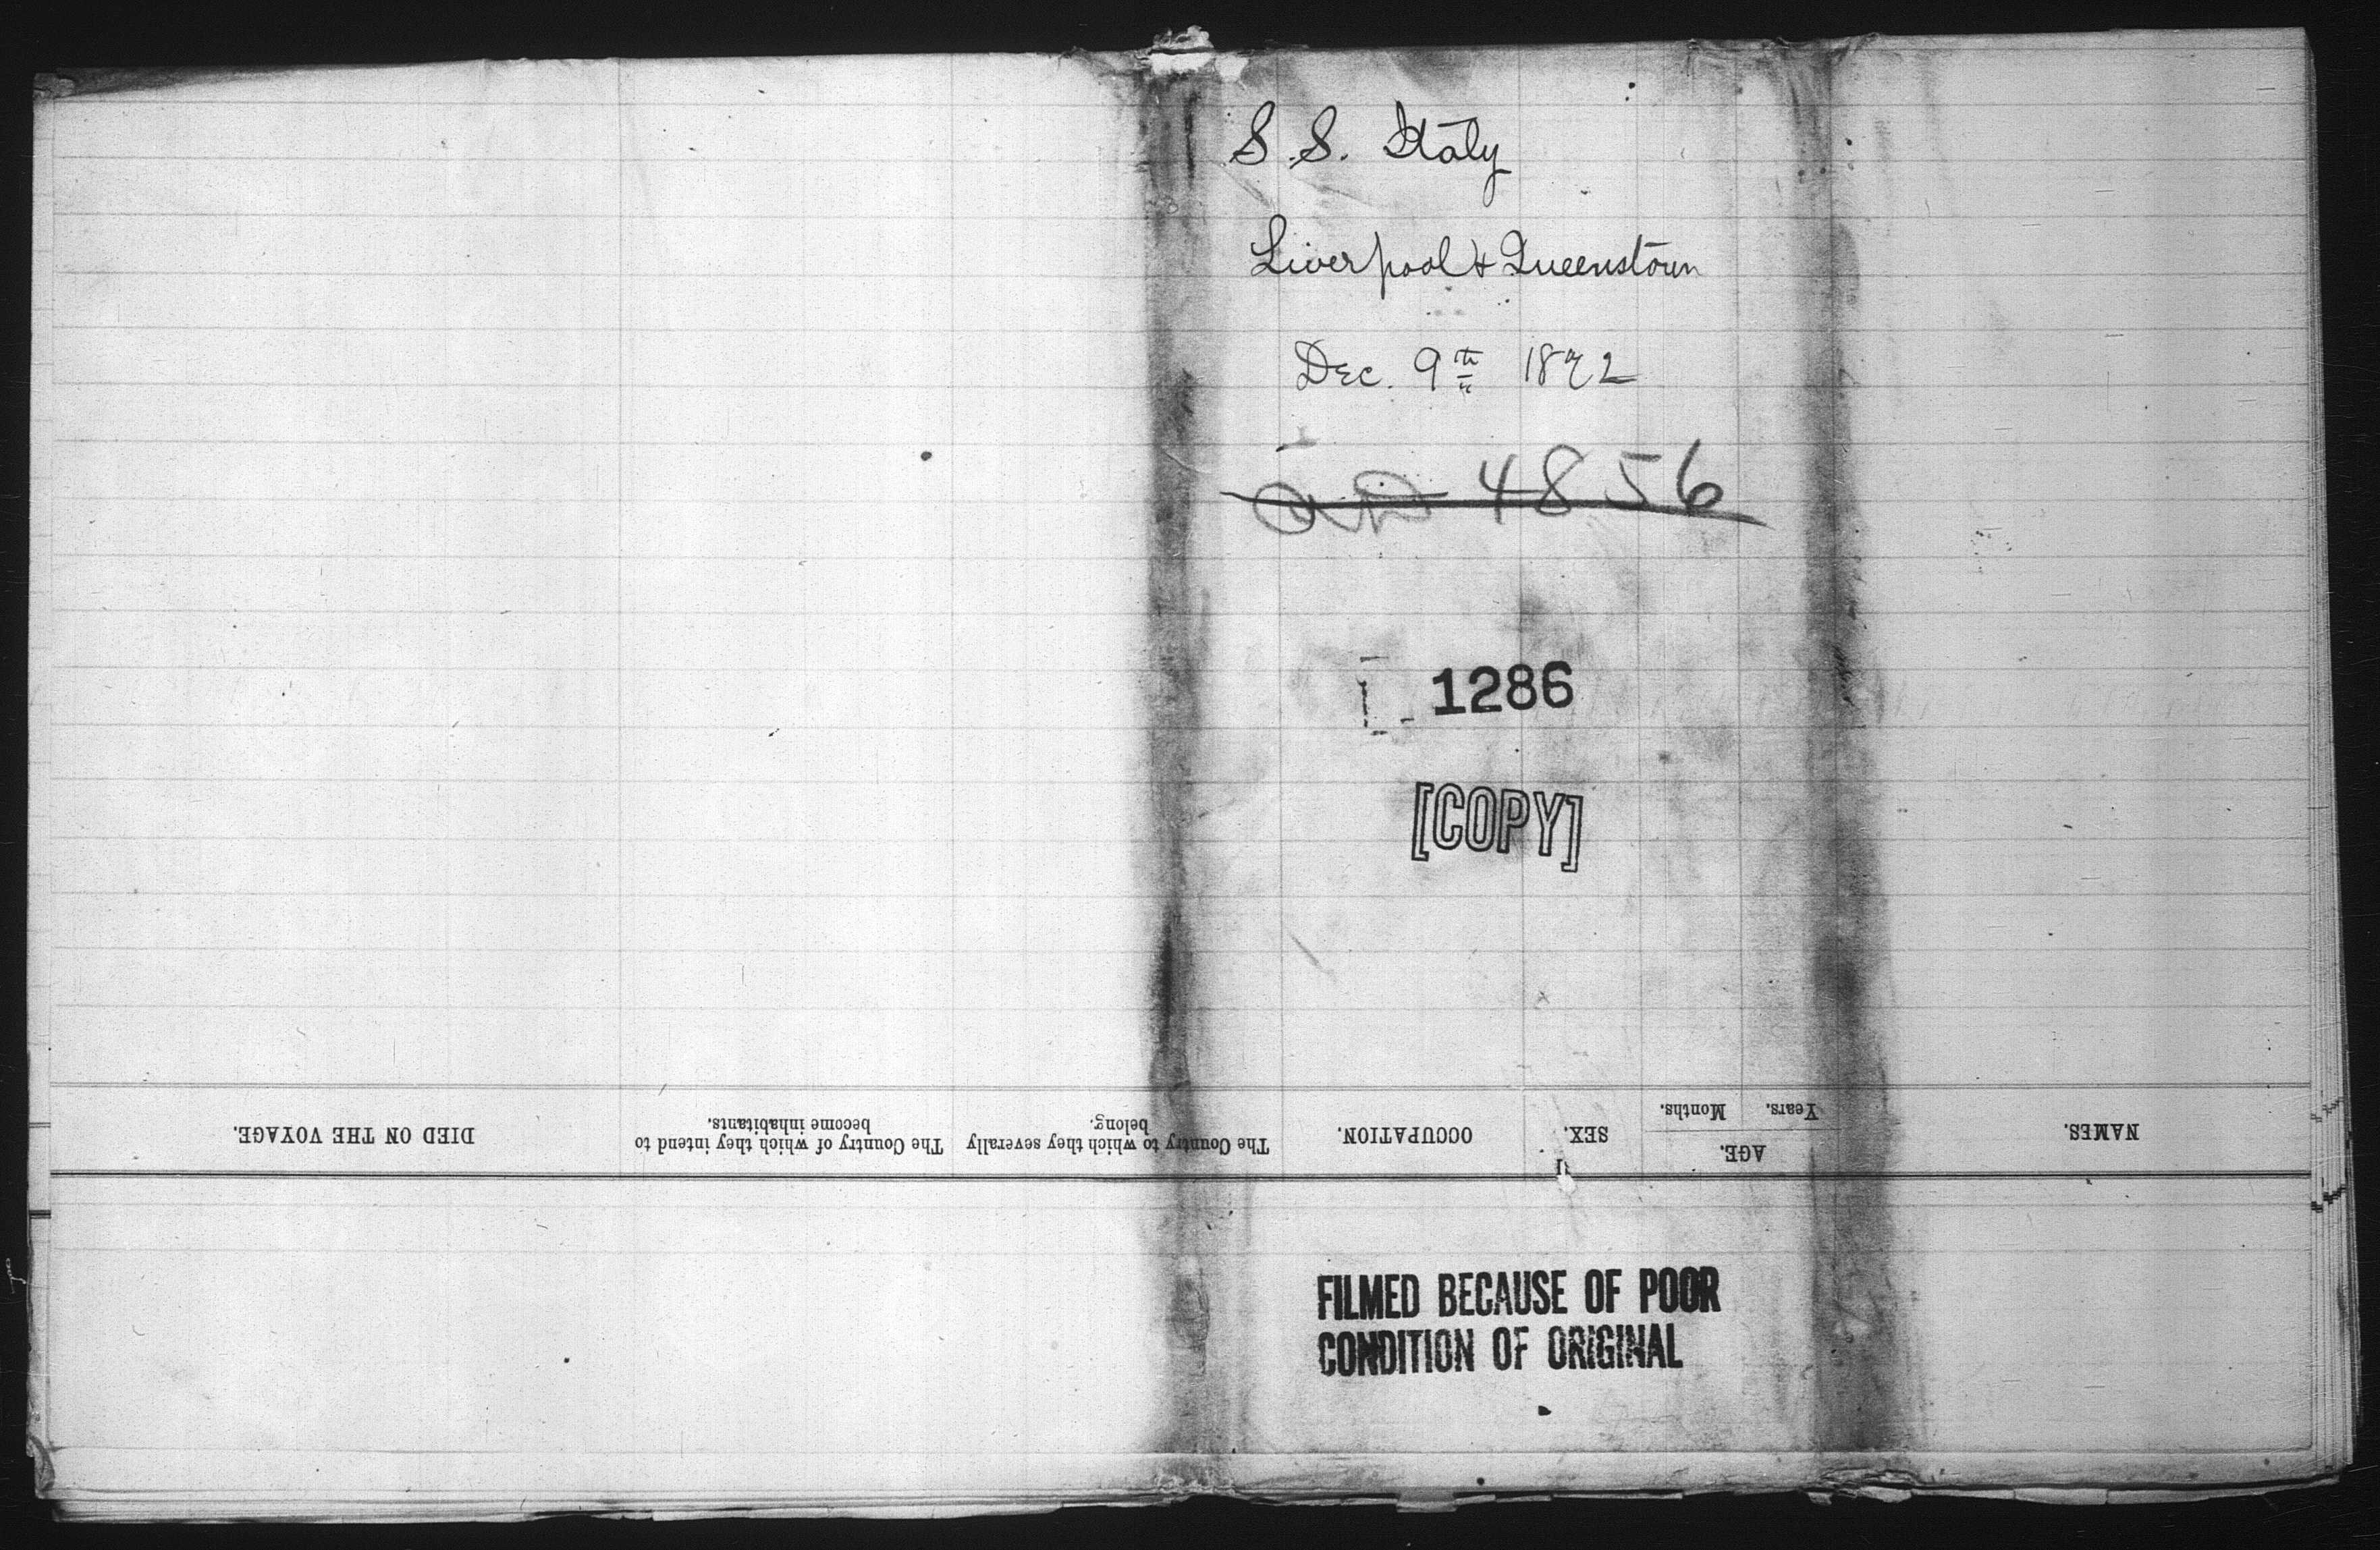 S.S. Italy
Liverpool & Queenstown
Dec. 9th 1872
4856
1286
[COPY]
NAMES.
AGE.
Years.
Months.
SEX.
OCCUPATION.
The Country to which they severally
belong.
The Country of which they intend to
become inhabitants.
DIED ON THE VOYAGE.
FILMED BECAUSE OF POOR
CONDITION OF ORIGINAL